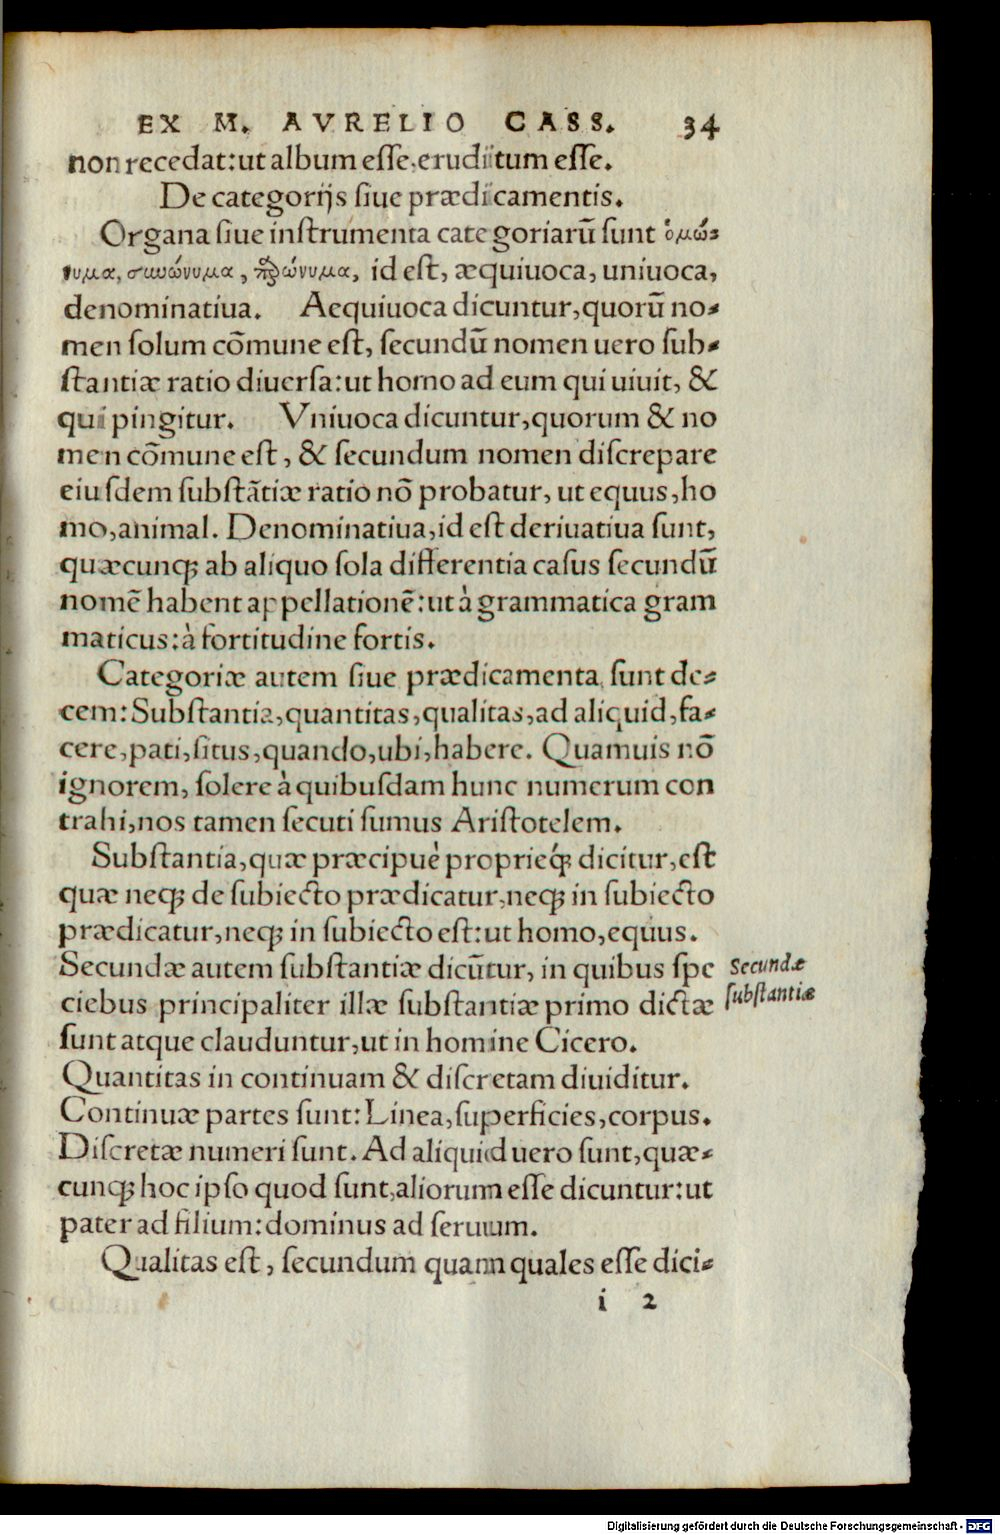 EX M. AVRELIO CASS. 34
non recedat:ut album eſſe.eruditum eſſe.
De categorijs ſiue prædicamentis.
Organa ſiue inſtrumenta categoriarũ ſunt ὁμώ⸗
νυμα, σιωώνυμα, παρώνυμα, id eſt, æquiuoca, uniuoca,
denominatiua. Aequiuoca dicuntur,quorũ no⸗
men ſolum cõmune eſt, ſecundũ nomen uero ſub⸗
ſtantiæ ratio diuerſa:ut homo ad eum qui uiuit, &
qui pingitur. Vniuoca dicuntur,quorum & no
men cõmune eſt, & ſecundum nomen diſcrepare
eiuſdem ſubſtãtiæ ratio nõ probatur, ut equus,ho
mo,animal. Denominatiua,id eſt deriuatiua ſunt,
quæcunq; ab aliquo ſola differentia caſus ſecundũ
nomẽ habent appellationẽ:ut à grammatica gram
maticus:à fortitudine fortis.
Categoriæ autem ſiue prædicamenta ſunt de⸗
cem:Subſtantia,quantitas,qualitas,ad aliquid,fa⸗
cere,pati,ſitus,quando,ubi,habere. Quamuis nõ
ignorem, ſolere à quibuſdam hunc numerum con
trahi,nos tamen ſecuti ſumus Ariſtotelem.
Subſtantia,quæ præcipuè proprieq́; dicitur,eſt
quæ neq; de ſubiecto prædicatur,neq; in ſubiecto
prædicatur,neq; in ſubiecto eſt:ut homo,equus.
Secundæ autem ſubſtantiæ dicũtur, in quibus ſpe
ciebus principaliter illæ ſubſtantiæ primo dictæ
ſunt atque clauduntur,ut in homine Cicero.
Secundæ
ſubſtantiæ
Quantitas in continuam & diſcretam diuiditur.
Continuæ partes ſunt:Linea,ſuperficies,corpus.
Diſcretæ numeri ſunt. Ad aliquid uero ſunt,quæ⸗
cunq; hoc ipſo quod ſunt,aliorum eſſe dicuntur:ut
pater ad filium:dominus ad ſeruum.
Qualitas eſt, ſecundum quam quales eſſe dici⸗
i 2
Digitalisierung gefördert durch die Deutsche Forschungsgemeinschaft - DFG